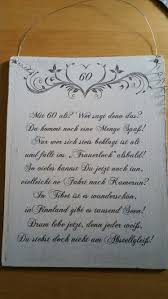 60
Mit 60 alt? Wer sagt denn das?
Du kommt noch eine Menge Spaß!
Nur wer sich stets beklagt ist alt
und fällt ins "Trauerloch" alsbald!
So vieles kannst Du jetzt noch tun,
vielleicht ne Fahrt nach Kamerun?
In Tibet ist es wunderschön,
in Finnland gibt es tausend Seen!
Drum lebe jetzt, denn jeder weiß:
Du stehst doch nicht am Abstellgleis!